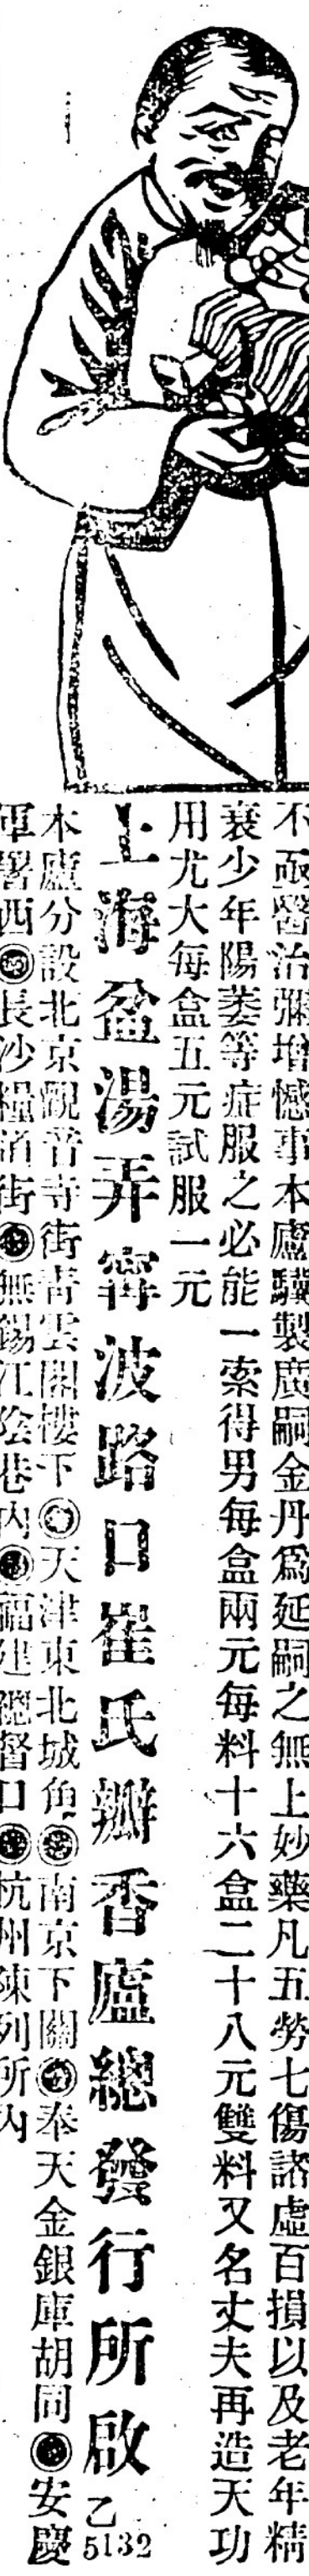 不亟醫治彌增憾事本廬驥製廣嗣金丹爲延嗣之無上妙藥凡五勞七傷諸虛百損以及老年精
衰少年陽萎等症服之必能一索得男每盒兩元每料十六盒二十八元雙料又名丈夫再造天功
用尤大每盒五元試服一元
上海盆湯弄寗波路口崔氏瓣香廬總發行所啟 乙5132
本廬分設北京觀音寺街青雲閣樓下天津東北城角南京下關奉天金銀庫胡同安慶
軍署西長沙糧道街無錫江陰巷內福建總督口杭州陳列所內